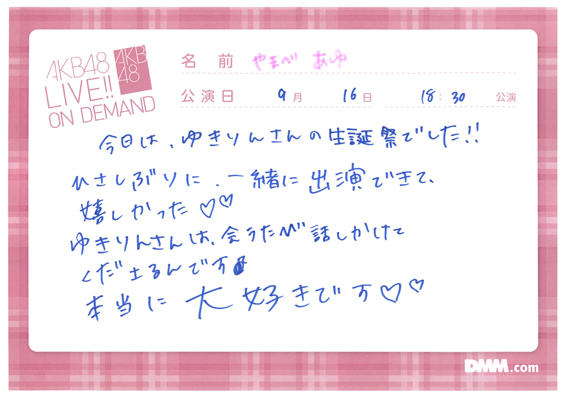 AKB48
LIVE!!
ON DEMAND
AKB
48
名前 やまべ あゆ
公演日 9月 16日 18:30 公演
今日は、ゆきりんさんの生誕祭でした!!
ひさしぶりに、一緒に出演できて、
嬉しかった♡♡
ゆきりんさんは、会うたび話しかけて
くださるんです
本当に大好きです♡♡
DMM.com